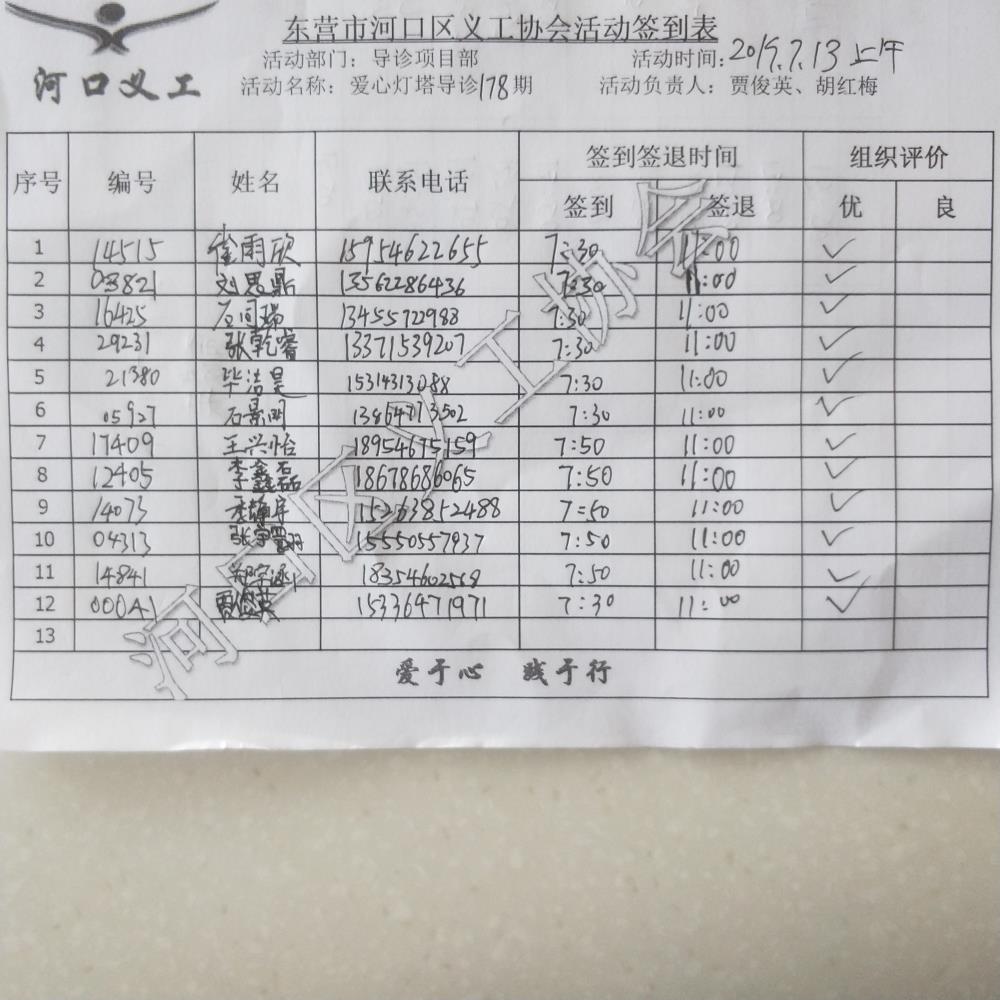 东营市河口区义工协会活动签到表
河口义工
活动部门：导诊项目部 活动时间：2019.7.13上午
活动名称：爱心灯塔导诊178期 活动负责人：贾俊英、胡红梅
序号 编号 姓名 联系电话 签到签退时间 组织评价
签到 签退 优 良
1 14515 雨欣 15954622655 7:30 11:00 ✓
2 03821 刘思鼎 13562286436 7:30 11:00 ✓
3 16425 石同瑞 13455722988 7:30 11:00 ✓
4 29231 张乾睿 13371539207 7:30 11:00 ✓
5 21380 毕洁昊 15314313088 7:30 11:00 ✓
6 05927 石景闻 13864773502 7:30 11:00 ✓
7 17409 王兴怡 18954675159 7:50 11:00 ✓
8 12405 李鑫磊 18678686065 7:50 11:00 ✓
9 14073 15263852488 7:50 11:00 ✓
10 04313 张 15550557937 7:50 11:00 ✓
11 14841 18354602568 7:50 11:00 ✓
12 000A1 贾俊英 15336471971 7:30 11:00 ✓
13
爱于心 践于行
河口区义工协会